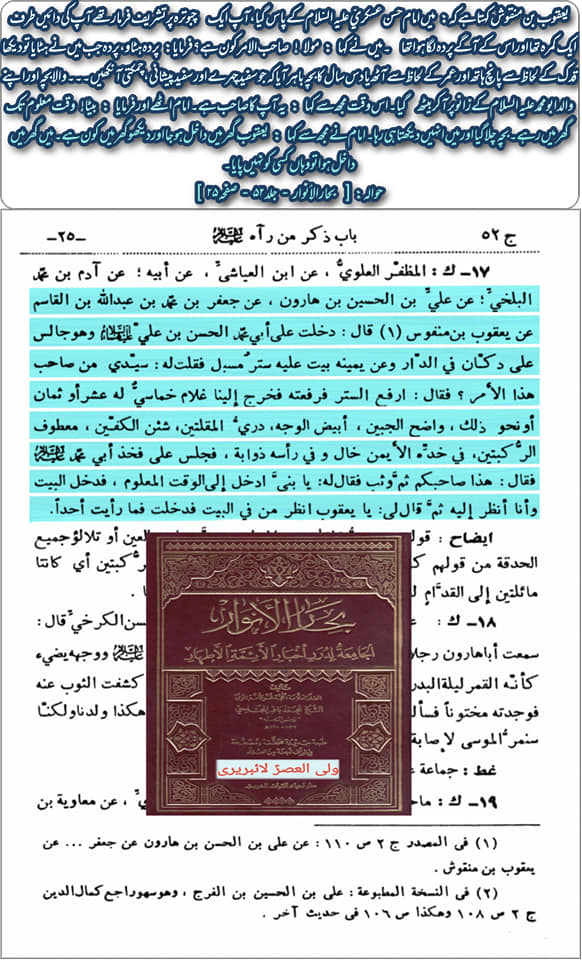 یعقوب بن منقوش کہتا ہے کہ: میں امام حسن عسکری علیہ السلام کے پاس گیا، آپ ایک چبوترہ پر تشریف فرما تھے آپ کی دائیں طرف
ایک کمرہ تھا اور اس کے آگے پردہ لگا ہوا تھا - میں نے کہا : مولا ! صاحب الامر کون ہے؟ فرمایا: پردہ ہٹاو، پردہ جب میں نے ہٹایا تو دیکھا
قد کے لحاظ سے پانچ ہاتھ اور عمر کے لحاظ سے آٹھ یا دس سال کا بچہ باہر آیا کہ جو سفید چہرے اور سفید پیشانی، چمکتی آنکھیں --- والا بچہ اور اپنے
والد ابو محمد علیہ السلام کے زانو پر آکر بیٹھ گیا۔ اس وقت مجھ سے کہا : یہ آپ کا صاحب ہے۔ امام اٹھے اور فرمایا : بیٹا! وقت معلوم تک
گھر میں رہے۔ بچہ چلا گیا اور میں انہیں دیکھتا ہی رہا۔ امام نے مجھ سے کہا : یعقوب گھر میں داخل ہو جا اور دیکھو گھر میں کون ہے۔ میں گھر میں
داخل ہوا تو وہاں کسی کو نہیں پایا۔
حوالہ : [ بحار الانوار - جلد ۵۲ - صفحہ ۲۵ ]
ج ٥٢ باب ذكر من رآه عليه السلام -٢٥-
١٧- ك : المظفّر العلويّ ، عن ابن العياشي ، عن أبيه ؛ عن آدم بن محمّد
البلخيّ ؛ عن عليّ بن الحسين بن هارون ، عن جعفر بن محمّد بن عبدالله بن القاسم
عن يعقوب بن منفوس (١) قال : دخلت على أبي محمّد الحسن بن عليّ عليه السلام وهو جالس
على دكّان في الدّار وعن يمينه بيت عليه ستر مسبل فقلت له : سيّدي من صاحب
هذا الأمر ؟ فقال : ارفع الستر فرفعته فخرج إلينا غلام خماسيّ له عشر أو ثمان
أو نحو ذلك ، واضح الجبين ، أبيض الوجه ، دريّ المقلتين ، شثن الكفّين ، معطوف
الرّكبتين، في خدّه الأيمن خال و في رأسه ذوابة ، فجلس على فخذ أبي محمّد عليه السلام
فقال : هذا صاحبكم ثمّ وثب فقال له : يا بنيّ ادخل إلى الوقت المعلوم ، فدخل البيت
وأنا أنظر إليه ثمّ قال لي : يا يعقوب انظر من في البيت فدخلت فما رأيت أحداً .
ايضاح : العين أو تلالؤ جميع
الحدقة من قولهم ركبتين أي كانتا
مائلتين إلى القدّام
١٨- ك : سن الكرخيّ قال :
سمعت أباهارون رجلا عليه السلام ووجهه يضيء
كأنّه القمر ليلة البدر كشفت الثوب عنه
فوجدته مختوناً هكذا ولدنا ولكنّا
سنمرّ الموسى لإصابة
غط : جماعة
١٩- ك : ، عن معاوية بن
بحار الأنوار
الجامعة لدرر أخبار الأئمة الأطهار
تأليف
الشيخ محمد باقر المجلسي
ولی العصرؑ لائبریری
(١) فى المصدر ج ٢ ص ١١٠ : عن على بن الحسن بن هارون عن جعفر ... عن
يعقوب بن منقوش .
(٢) فى النسخة المطبوعة : على بن الحسين بن الفرج ، وهو سهو راجع كمال الدين
ج ٢ ص ١٠٨ وهكذا ص ١٠٦ فى حديث آخر .